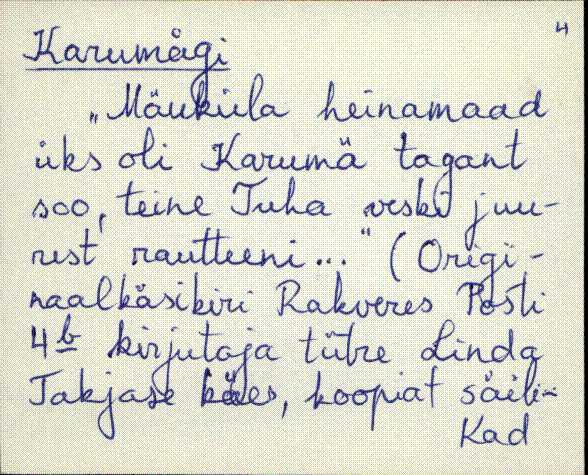 4
Karumägi
„Mäuküla heinamaad
üks oli Karumä tagant
soo, teine Tuha veski juu-
rest rautteeni..." (Origi-
naalkäsikiri Rakveres Posti
4b kirjutaja tütre Linda
Takjase käes, koopiat säili-
Kad